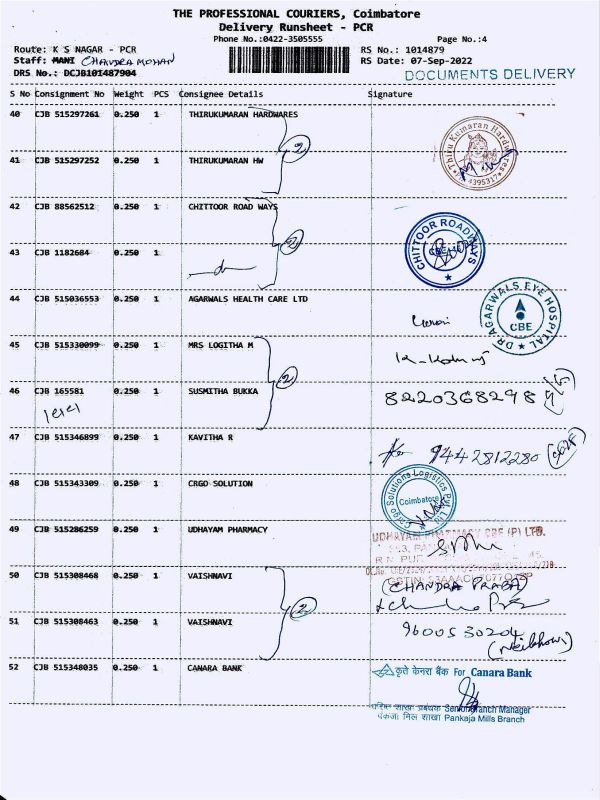 THE PROFESSIONAL COURIERS, Coimbatore
Delivery Runsheet - PCR
Phone No.:0422-3505555 Page No.:4
Route: K S NAGAR - PCR RS No.: 1014879
Staff: MANI CHANDRA MOHAN RS Date: 07-Sep-2022
DRS No.: DCJB101487904 DOCUMENTS DELIVERY
S No Consignment No Weight PCS Consignee Details Signature
40 CJB 515297261 0.250 1 THIRUKUMARAN HARDWARES
2
Thiru Kumaran Hardwares
4395317
41 CJB 515297252 0.250 1 THIRUKUMARAN HW
42 CJB 88562512 0.250 1 CHITTOOR ROAD WAYS
2
CHITTOOR ROADWAYS
43 CJB 1182684 0.250 1
44 CJB 515036553 0.250 1 AGARWALS HEALTH CARE LTD
DR AGARWALS EYE HOSPITAL
CBE
45 CJB 515330099 0.250 1 MRS LOGITHA M
2
46 CJB 165581 0.250 1 SUSMITHA BUKKA
8220368298
47 CJB 515346899 0.250 1 KAVITHA R
9442812280
48 CJB 515343309 0.250 1 CRGO SOLUTION
Cargo Solutions Logistics Pvt. Ltd
Coimbatore
49 CJB 515286259 0.250 1 UDHAYAM PHARMACY
UDHAYAM PHARMACY CBE (P) LTD.
50 CJB 515308468 0.250 1 VAISHNAVI
(CHANDRA PRABA)
2
51 CJB 515308463 0.250 1 VAISHNAVI
9600530204
(Neibhour)
52 CJB 515348035 0.250 1 CANARA BANK
कृते केनरा बैंक For Canara Bank
वरिष्ठ शाखा प्रबंधक Senior Branch Manager
पंकजा मिल शाखा Pankaja Mills Branch